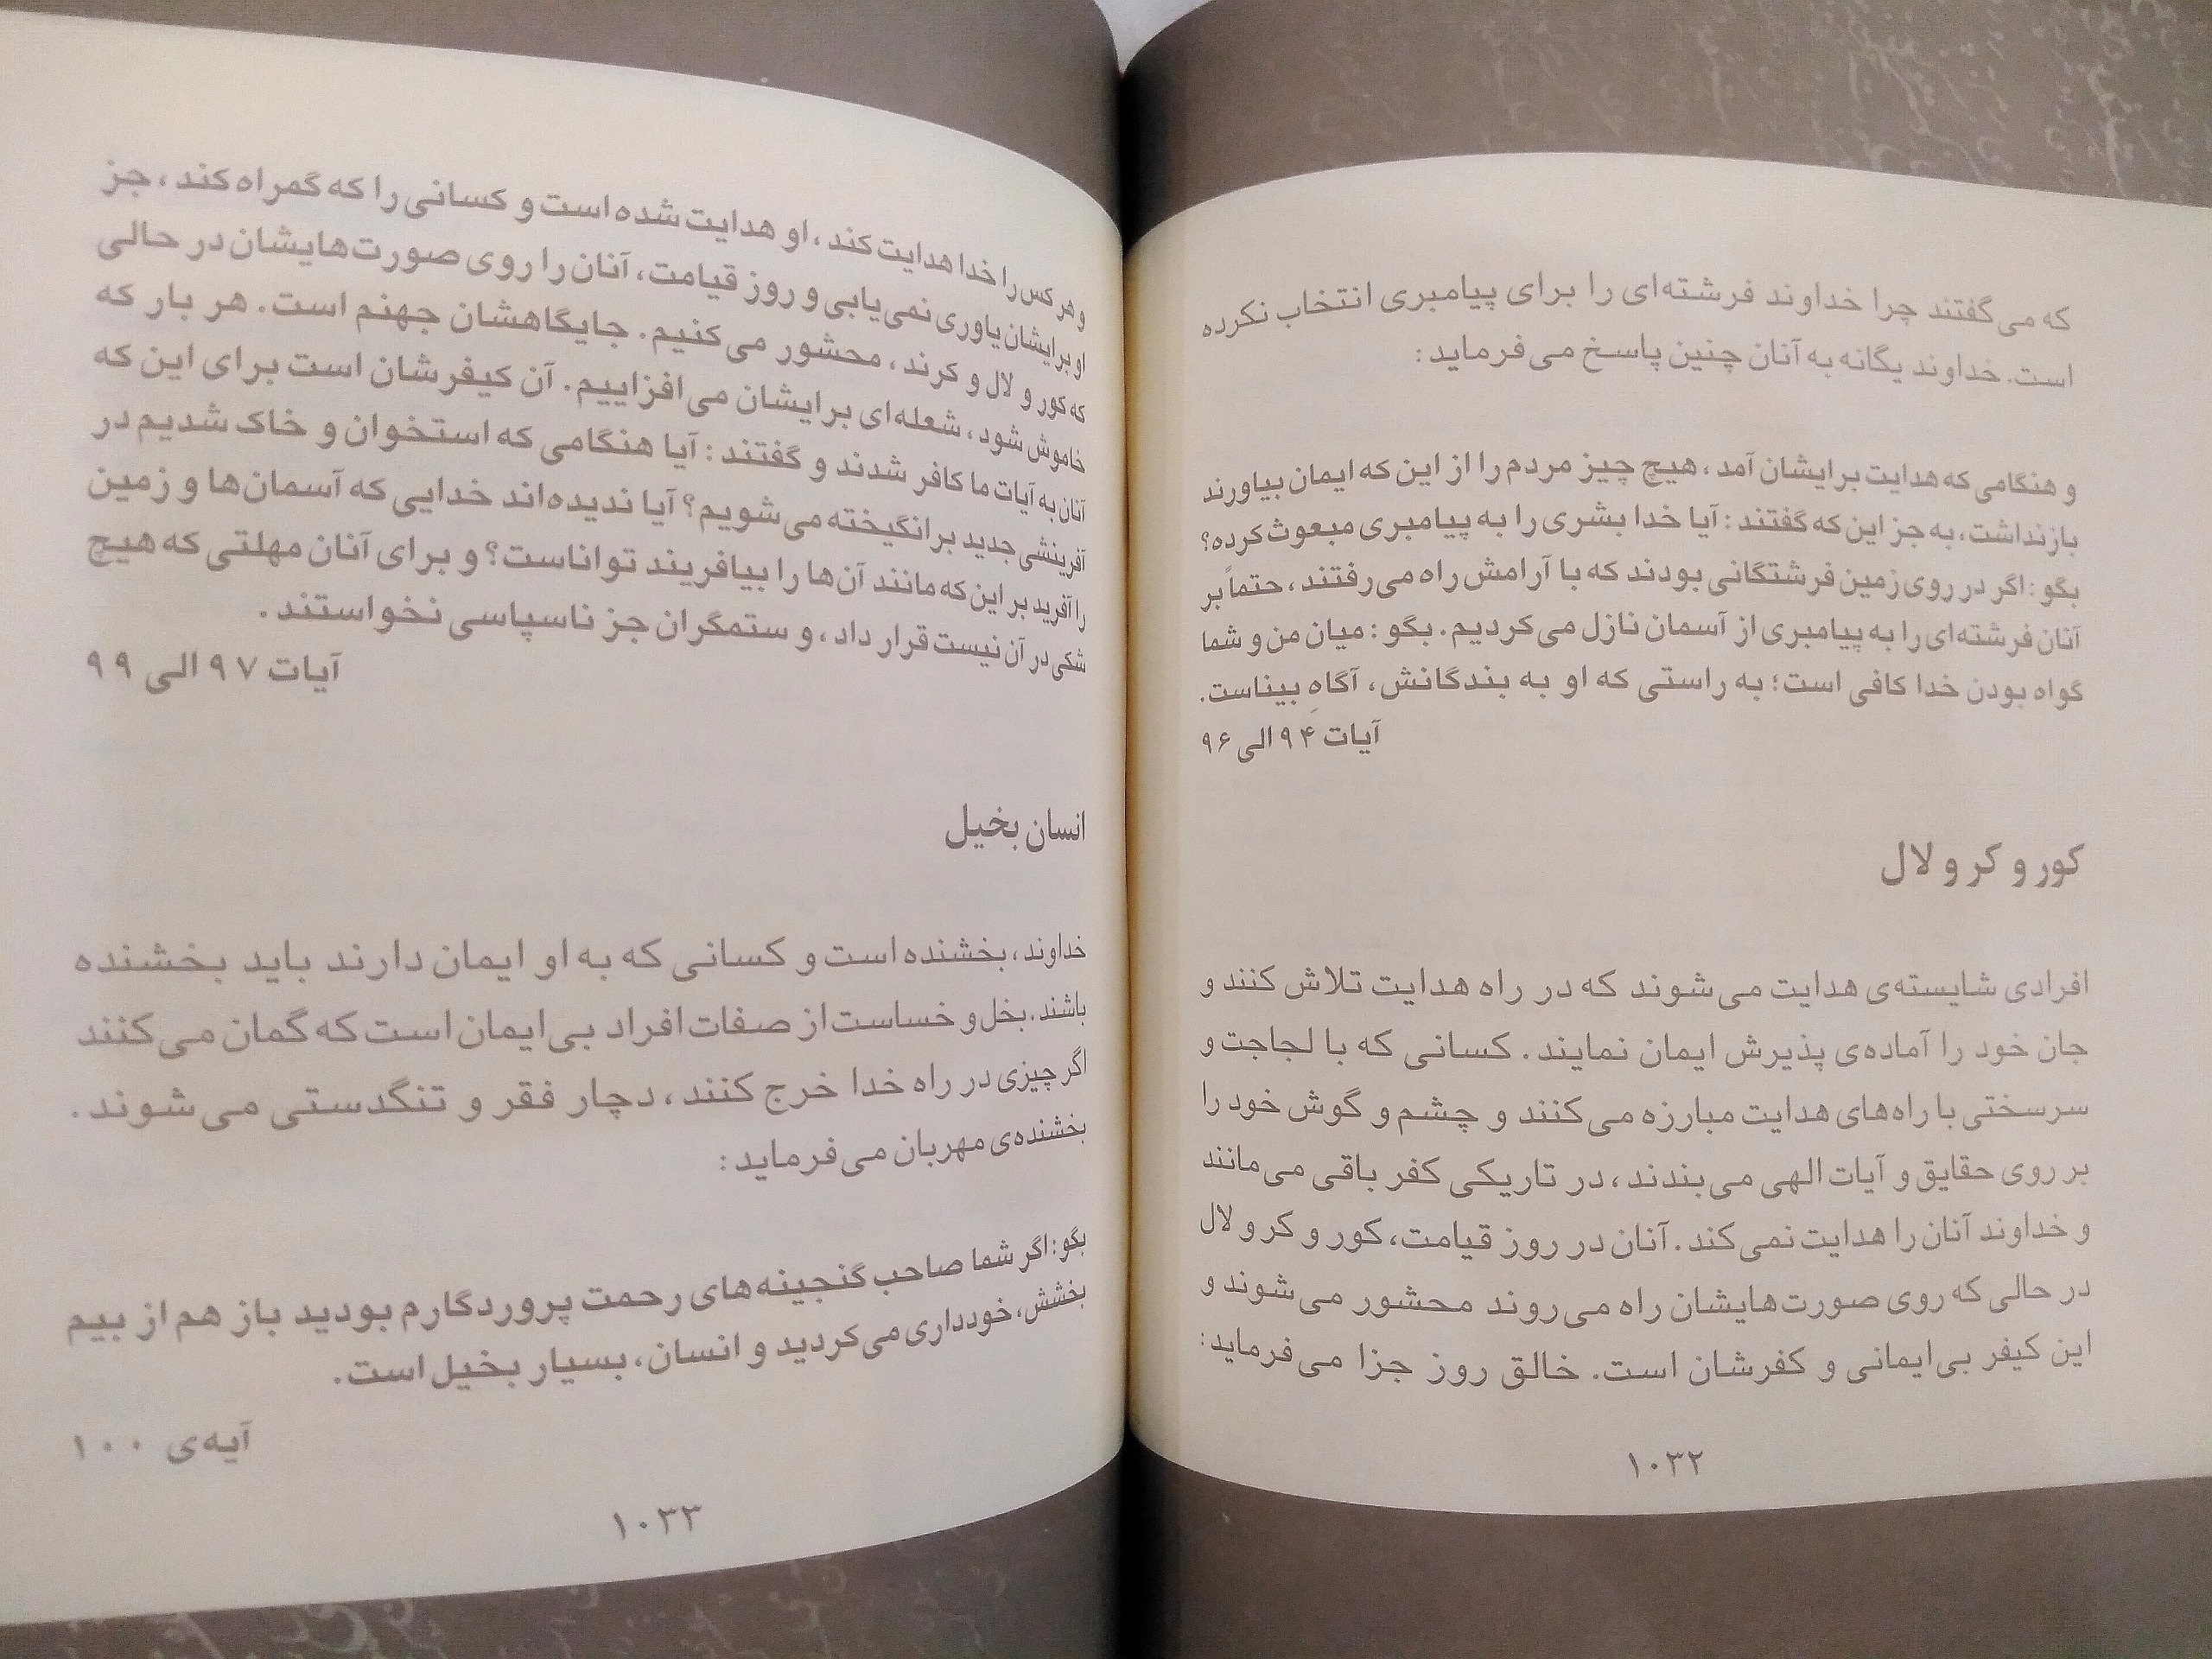 که می‌گفتند چرا خداوند فرشته‌ای را برای پیامبری انتخاب نکرده
است. خداوند یگانه به آنان چنین پاسخ می‌فرماید:
و هنگامی که هدایت برایشان آمد، هیچ چیز مردم را از این که ایمان بیاورند
بازنداشت، به جز این که گفتند: آیا خدا بشری را به پیامبری مبعوث کرده؟
بگو: اگر در روی زمین فرشتگانی بودند که با آرامش راه می‌رفتند، حتماً بر
آنان فرشته‌ای را به پیامبری از آسمان نازل می‌کردیم. بگو: میان من و شما
گواه بودن خدا کافی است؛ به راستی که او به بندگانش، آگاهِ بیناست.
آیات ۹۴ الی ۹۶
کور و کر و لال
افرادی شایسته‌ی هدایت می‌شوند که در راه هدایت تلاش کنند و
جان خود را آماده‌ی پذیرش ایمان نمایند. کسانی که با لجاجت و
سرسختی با راه‌های هدایت مبارزه می‌کنند و چشم و گوش خود را
بر روی حقایق و آیات الهی می‌بندند، در تاریکی کفر باقی می‌مانند
و خداوند آنان را هدایت نمی‌کند. آنان در روز قیامت، کور و کر و لال
در حالی که روی صورت‌هایشان راه می‌روند محشور می‌شوند و
این کیفر بی‌ایمانی و کفرشان است. خالق روز جزا می‌فرماید:
۱۰۳۲
و هر کس را خدا هدایت کند، او هدایت شده است و کسانی را که گمراه کند، جز
او برایشان یاوری نمی‌یابی و روز قیامت، آنان را روی صورت‌هایشان در حالی
که کور و لال و کرند، محشور می‌کنیم. جایگاهشان جهنم است. هر بار که
خاموش شود، شعله‌ای برایشان می‌افزاییم. آن کیفرشان است برای این که
آنان به آیات ما کافر شدند و گفتند: آیا هنگامی که استخوان و خاک شدیم در
آفرینشی جدید برانگیخته می‌شویم؟ آیا ندیده‌اند خدایی که آسمان‌ها و زمین
را آفرید بر این که مانند آن‌ها را بیافریند تواناست؟ و برای آنان مهلتی که هیچ
شکی در آن نیست قرار داد، و ستمگران جز ناسپاسی نخواستند.
آیات ۹۷ الی ۹۹
انسان بخیل
خداوند، بخشنده است و کسانی که به او ایمان دارند باید بخشنده
باشند. بخل و خساست از صفات افراد بی‌ایمان است که گمان می‌کنند
اگر چیزی در راه خدا خرج کنند، دچار فقر و تنگدستی می‌شوند.
بخشنده‌ی مهربان می‌فرماید:
بگو: اگر شما صاحب گنجینه‌های رحمت پروردگارم بودید باز هم از بیم
بخشش، خودداری می‌کردید و انسان، بسیار بخیل است.
آیه‌ی ۱۰۰
۱۰۳۳